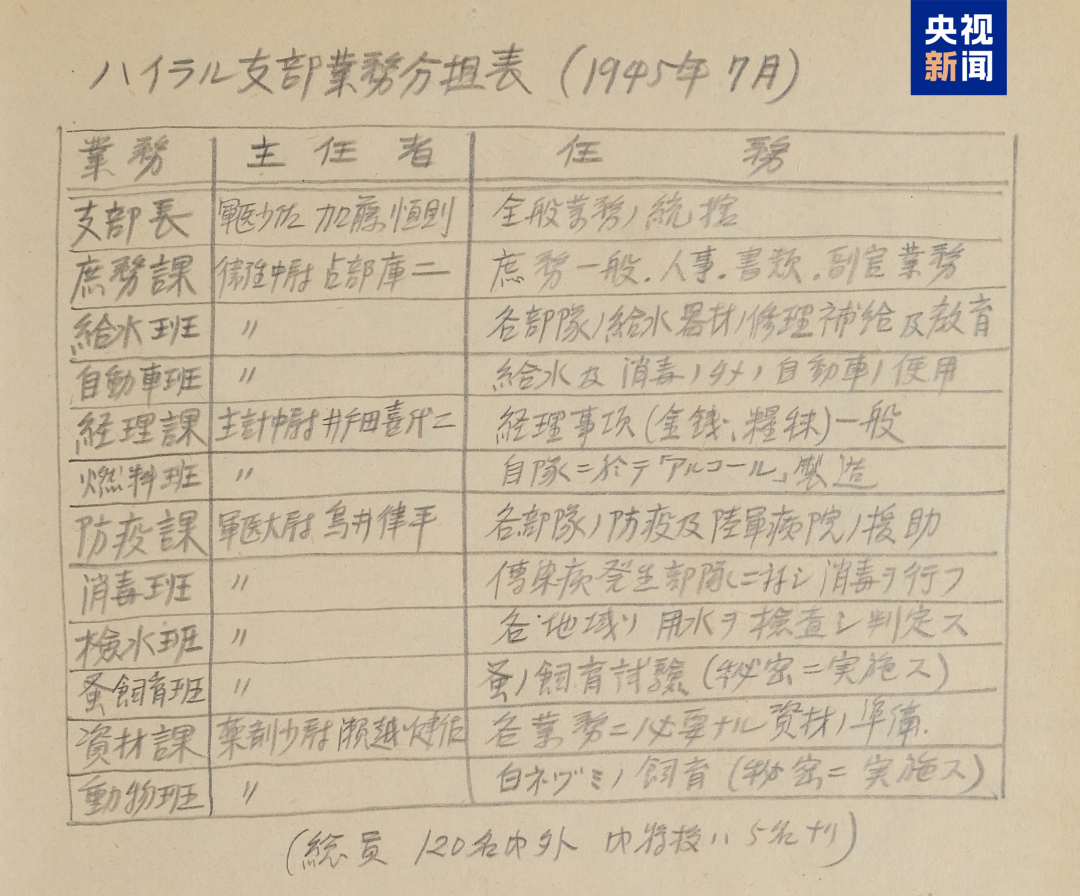 央视
新闻
ハイラル支部業務分担表（1945年7月）
業務 主任者 任務
支部長 軍医少佐 加藤恒則 全般業務ノ統括
庶務課 衛生中尉 占部庫二 庶務一般.人事.書類.副官業務
給水班 〃 各部隊ノ給水器材ノ修理補給及教育
自動車班 〃 給水及消毒ノタメノ自動車ノ使用
経理課 主計中尉 井田喜代二 経理事項(金銭、糧秣)一般
燃料班 〃 自隊ニ於テ「アルコール」製造
防疫課 軍医大尉 鳥井律平 各部隊ノ防疫及陸軍病院ノ援助
消毒班 〃 傳染病発生部隊ニ対シ消毒ヲ行フ
檢水班 〃 各地域ノ用水ヲ検査シ判定ス
蚤飼育班 〃 蚤ノ飼育試験(秘密ニ実施ス)
資材課 薬剤少尉 瀬越健佑 各業務ニ必要ナル資材ノ準備.
動物班 〃 白ネヅミノ飼育(秘密ニ実施ス)
(総員 120名内外 内將校ハ5名ナリ)